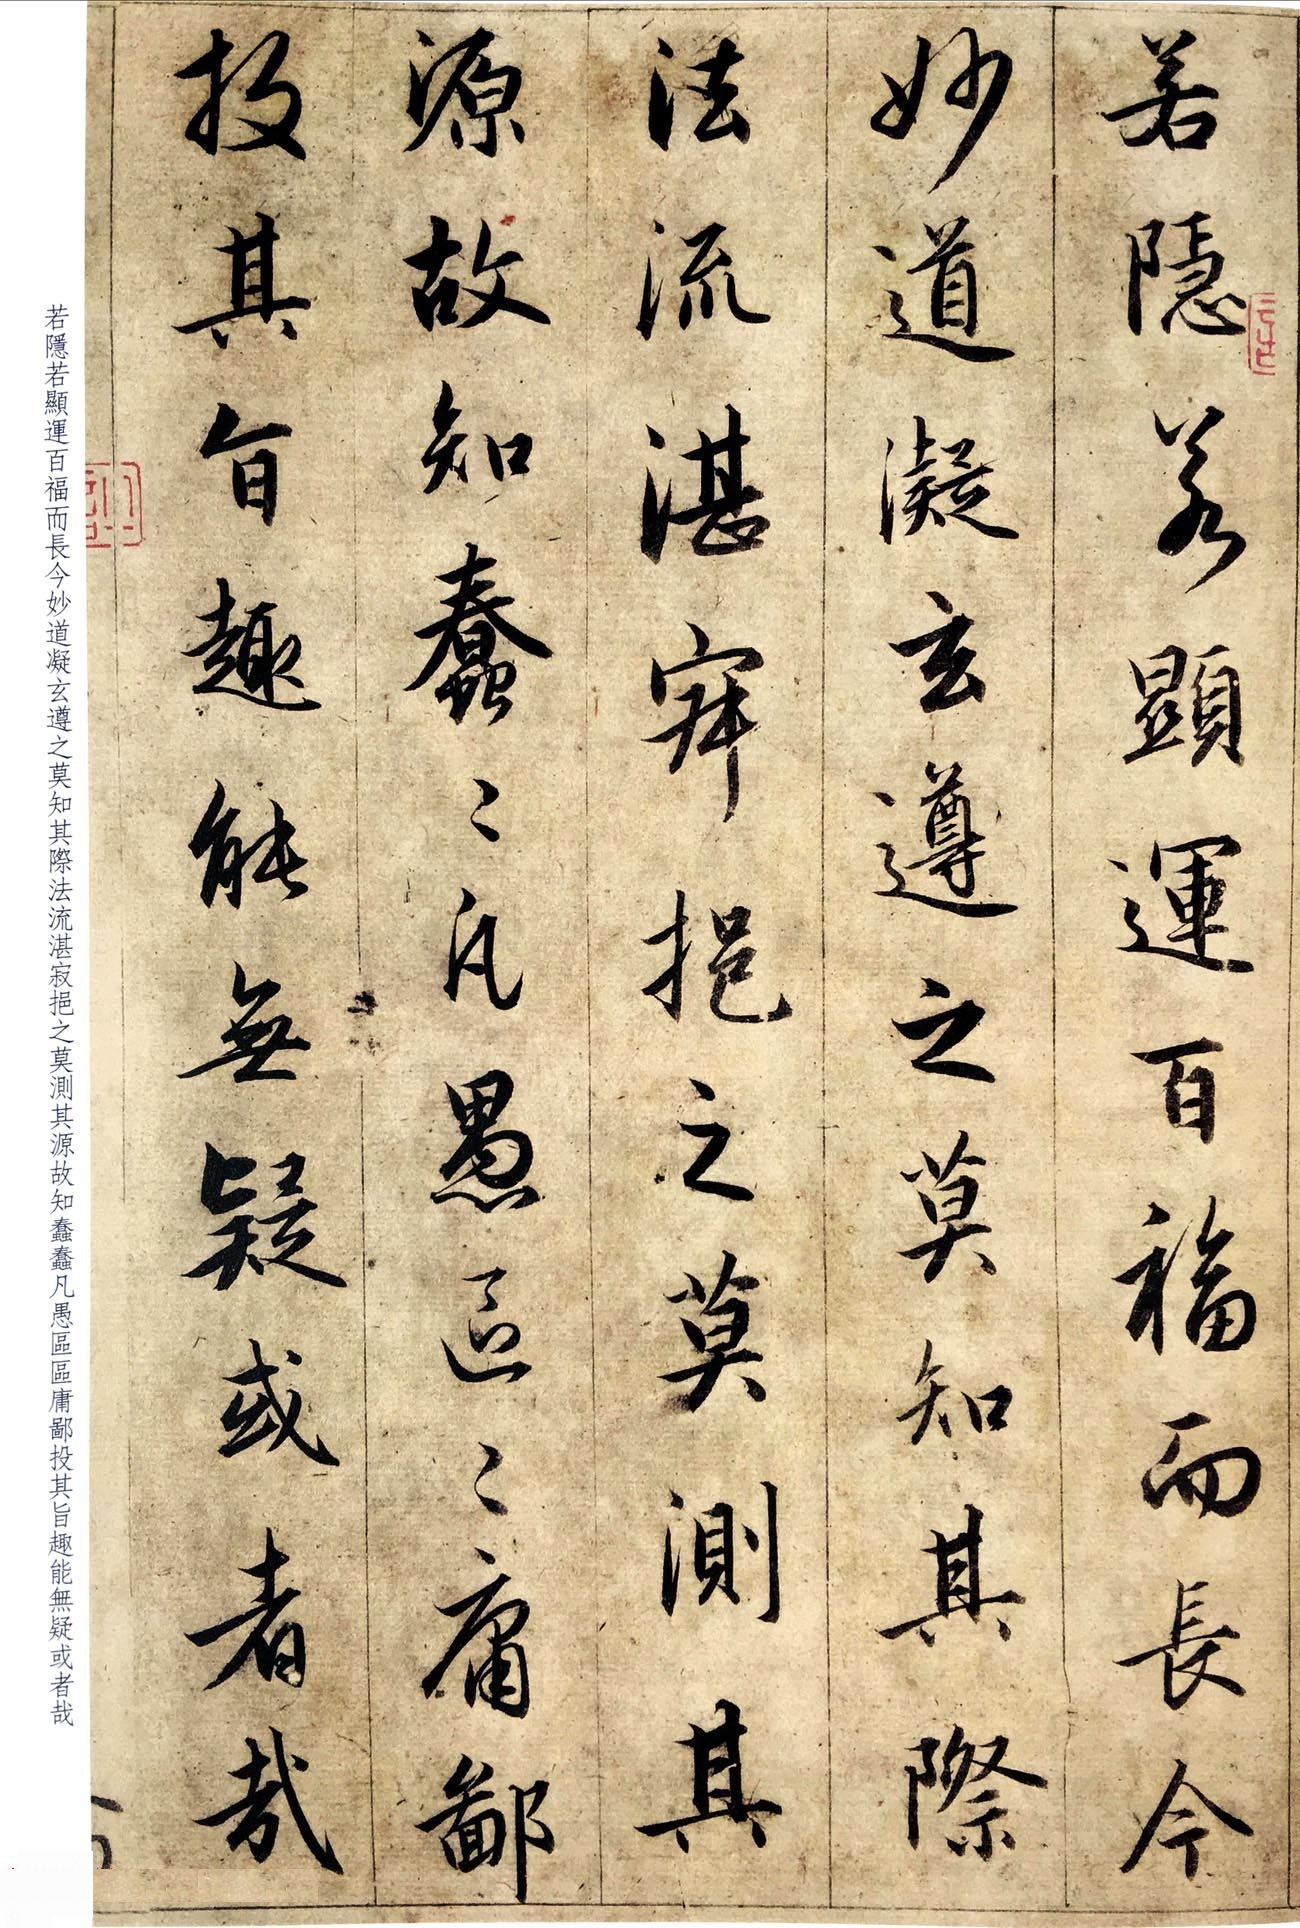 若隱若顯運百福而長今
妙道凝玄遵之莫知其際
法流湛寂挹之莫測其
源故知蠢〻凡愚區〻庸鄙
投其旨趣能無疑或者哉
若隱若顯運百福而長今妙道凝玄遵之莫知其際法流湛寂挹之莫測其源故知蠢蠢凡愚區區庸鄙投其旨趣能無疑或者哉